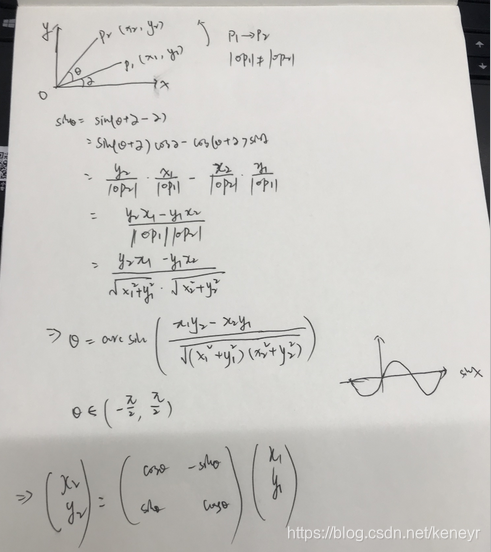 y
P₂ (x₂, y₂)
P₁ (x₁, y₁)
θ
α
O
x
P₁ → P₂
|OP₁| ≠ |OP₂|
sinθ = sin(θ+α-α)
= sin(θ+α) cosα - cos(θ+α) sinα
= y₂/|OP₂| · x₁/|OP₁| - x₂/|OP₂| · y₁/|OP₁|
= (y₂x₁ - y₁x₂) / (|OP₁| |OP₂|)
= (y₂x₁ - y₁x₂) / (√(x₁²+y₁²) · √(x₂²+y₂²))
⇒ θ = arcsin( (x₁y₂ - x₂y₁) / √((x₁²+y₁²)(x₂²+y₂²)) )
sinx
θ ∈ (-π/2, π/2)
⇒ (x₂ y₂) = (cosθ -sinθ sinθ cosθ) (x₁ y₁)
https://blog.csdn.net/keneyr